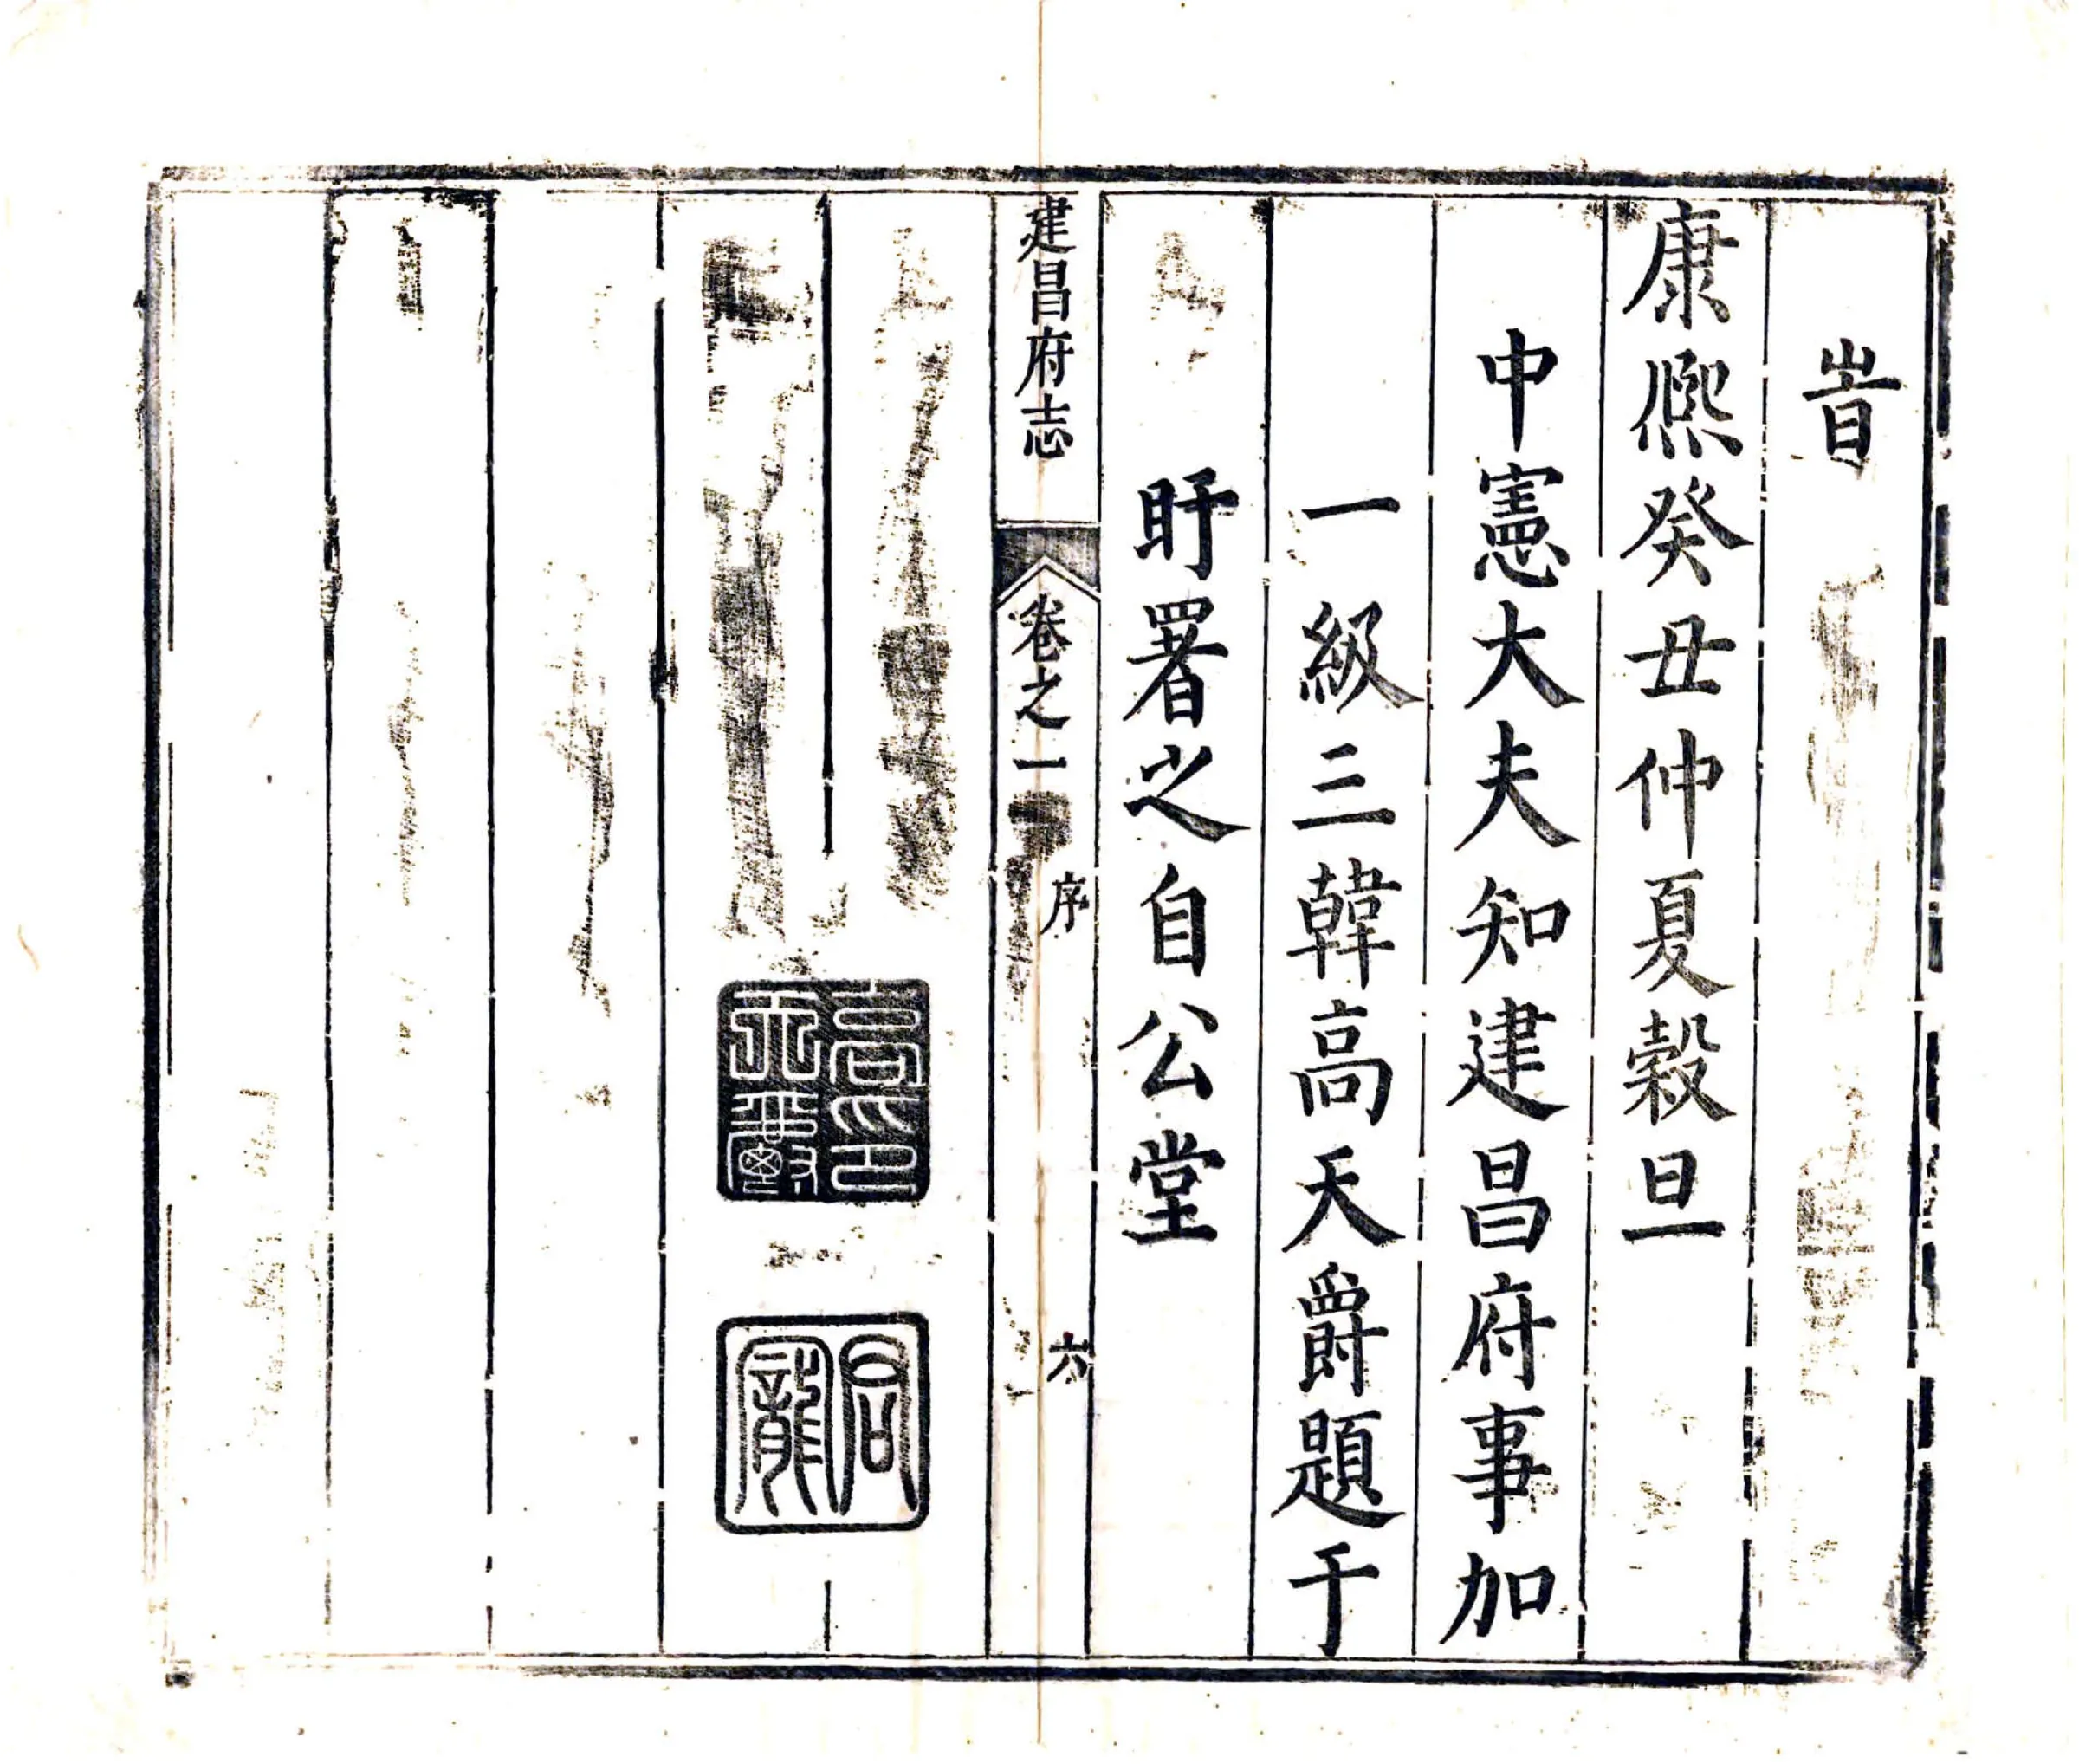 旹
康熙癸丑仲夏穀旦
中憲大夫知建昌府事加
一級三韓高天爵題于
盱署之自公堂
建昌府志 卷之一 序 六
高印天爵
君寵